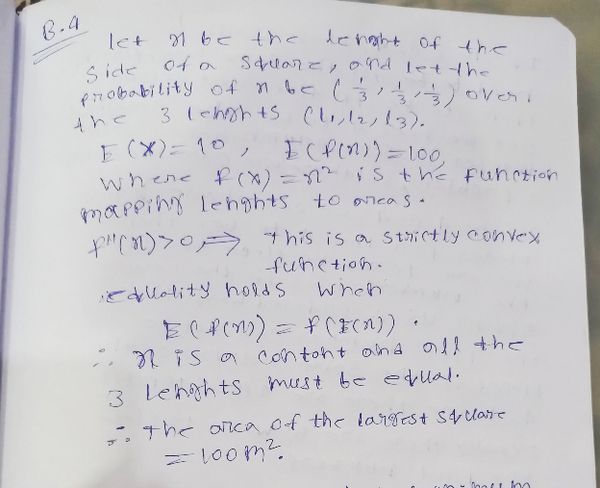 B.4
let x be the lenght of the
side of a square, and let the
probability of x be (1/3, 1/3, 1/3) over
the 3 lenghts (l1, l2, l3).
E(X) = 10, E(f(x)) = 100,
where f(x) = x² is the function
mapping lenghts to areas.
f''(x) > 0, ⇒ this is a strictly convex
function.
equality holds when
E(f(x)) = f(E(x)).
∴ x is a contont and all the
3 lenghts must be equal.
∴ the area of the largest square
= 100m².